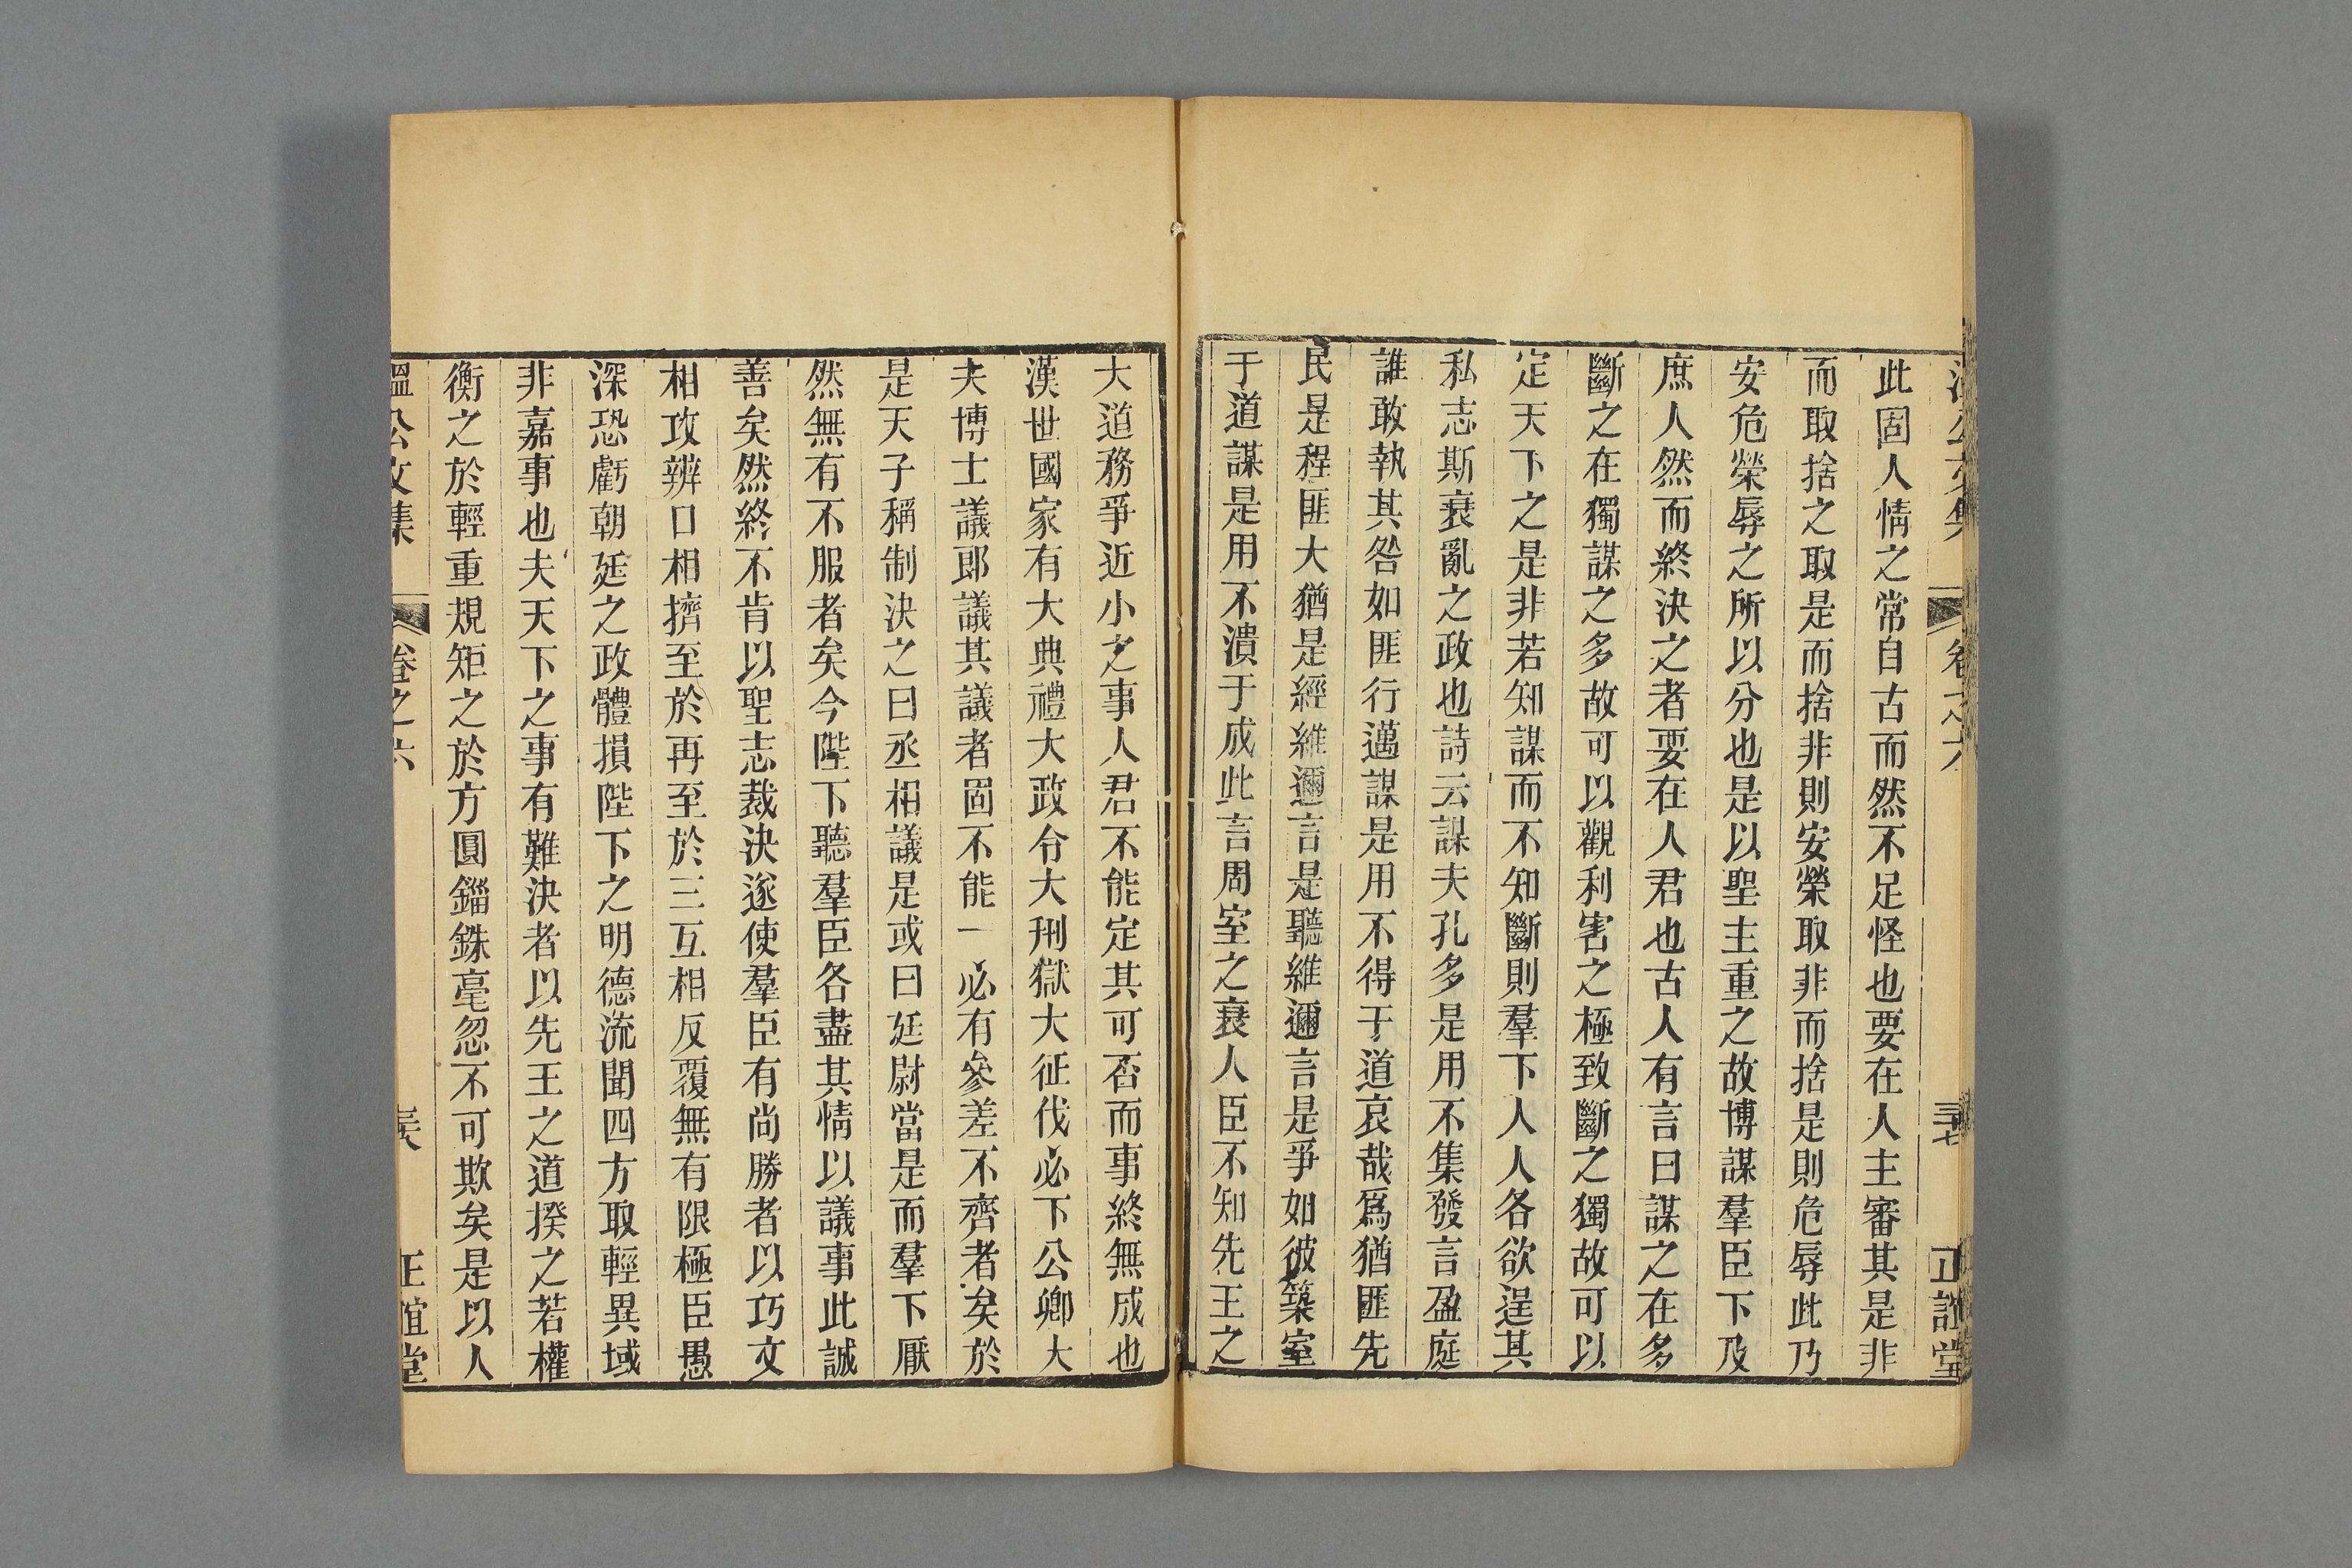 此固人情之常自古而然不足怪也要在人主審其是非
而取捨之取是而捨非則安榮取非而捨是則危辱此乃
安危榮辱之所以分也是以聖主重之故博謀羣臣下及
庶人然而終決之者要在人君也古人有言曰謀之在多
斷之在獨謀之多故可以觀利害之極致斷之獨故可以
定天下之是非若知謀而不知斷則羣下人人各欲逞其
私志斯衰亂之政也詩云謀夫孔多是用不集發言盈庭
誰敢執其咎如匪行邁謀是用不得于道哀哉爲猶匪先
民是程匪大猶是經維邇言是聽維邇言是爭如彼築室
于道謀是用不潰于成此言周室之衰人臣不知先王之
大道務爭近小之事人君不能定其可否而事終無成也
漢世國家有大典禮大政令大刑獄大征伐必下公卿大
夫博士議郎議其議者固不能一必有參差不齊者矣於
是天子稱制決之曰丞相議是或曰廷尉當是而羣下厭
然無有不服者矣今陛下聽羣臣各盡其情以議事此誠
善矣然終不肯以聖志裁決遂使羣臣有尚勝者以巧文
相攻辨口相擠至於再至於三互相反覆無有限極臣愚
深恐虧朝廷之政體損陛下之明德流聞四方取輕異域
非嘉事也夫天下之事有難決者以先王之道揆之若權
衡之於輕重規矩之於方圓錙銖毫忽不可欺矣是以人
溫公文集 卷之六 三六 正誼堂